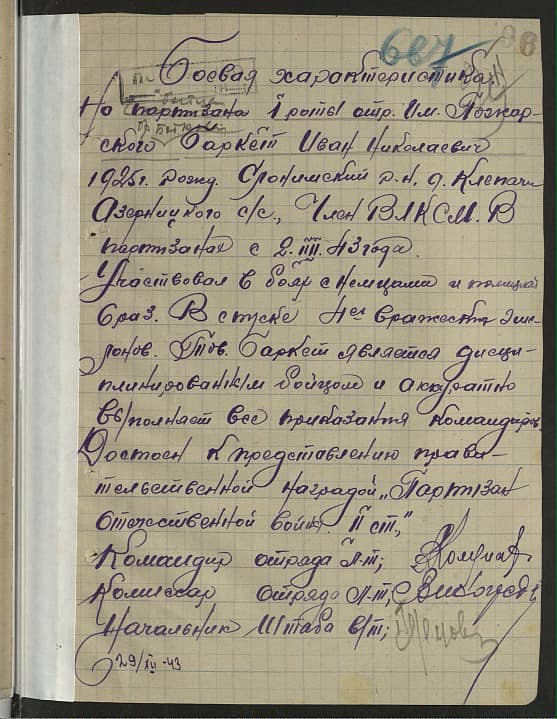 687
Боевая характеристика
На партизана I роты отр. им. Пожар-
ского Баркет Иван Николаевич
1925 г. рожд. Слонимский р.н, д. Клепачи
Азерницкого с/с., Член ВЛКСМ. В
партизанах с 2.III.43 года.
Участвовал в боях с немцами и полицией
6 раз. В спуске 4ех вражеских эше-
лонов. Тов. Баркет является дисци-
плинированным бойцом и аккуратно
выполняет все приказания командиров.
Достоен к представлению прави-
тельственной наградой „Партизан
отечественной войны II ст."
Командир отряда Л-т;
Комиссар отряда Л-т;
Начальник Штаба в/т;
29/XII-43